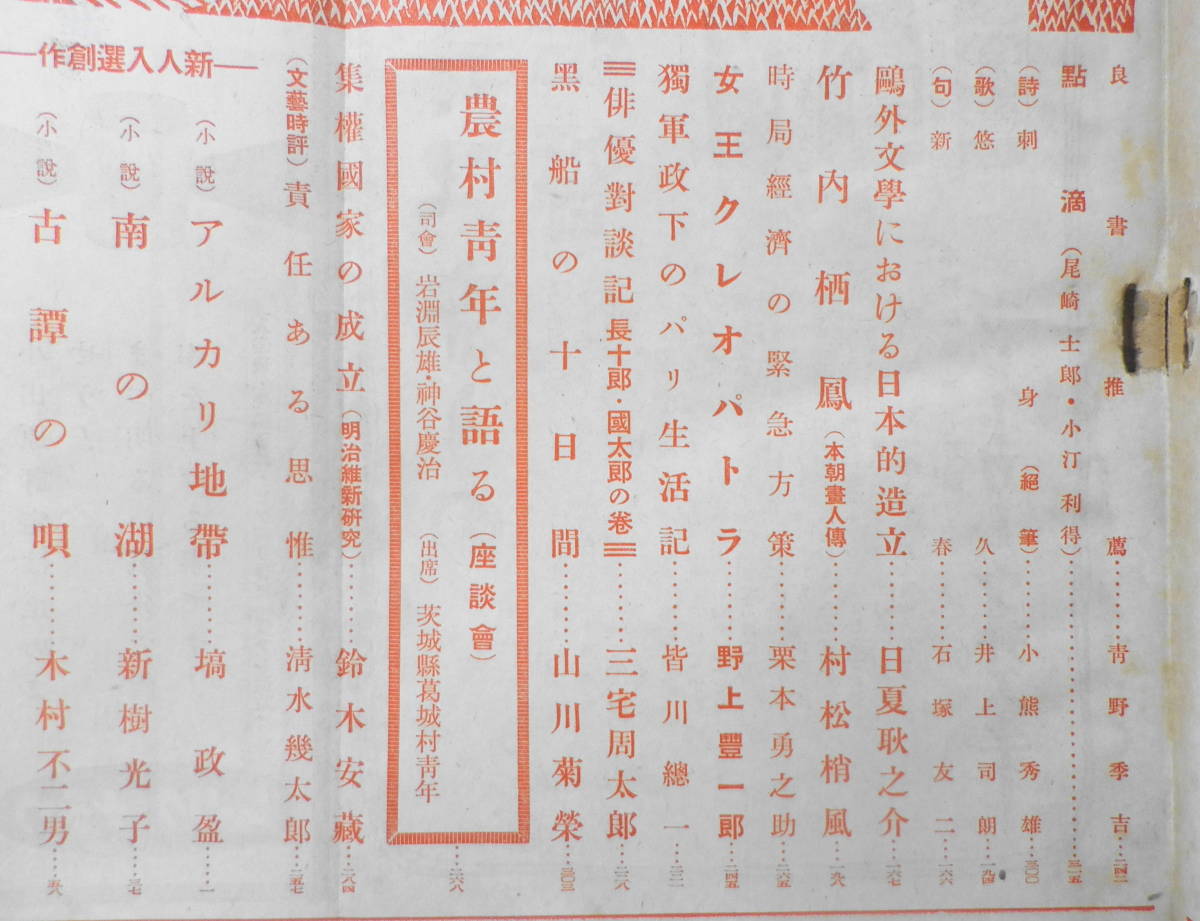 良書推薦……靑野季吉…二四二
點滴（尾崎士郎・小汀利得）……三一五
（詩）刺身（絕筆）小熊秀雄…三〇〇
（歌）悠久 井上司朗…一九四
（句）新春 石塚友二…一六六
鷗外文學における日本的造立……日夏耿之介…一六七
竹內栖鳳（本朝畫人傳）……村松梢風…一九八
時局經濟の緊急方策……栗本勇之助…二六五
女王クレオパトラ……野上豐一郎…二四五
獨軍政下のパリ生活記……皆川總一…
俳優對談記 長十郎・國太郎の卷……三宅周太郎…
黑船の十日間……山川菊榮…三〇三
農村靑年と語る（座談會）
（司會）岩淵辰雄・神谷慶治 （出席）茨城縣葛城村靑年
…二六八
集權國家の成立（明治維新硏究）……鈴木安藏…二八四
（文藝時評）責任ある思惟……淸水幾太郎…二五七
―新人入選創作―
（小說）アルカリ地帶……塙政盈…一
（小說）南の湖……新樹光子…三七
（小說）古譚の唄……木村不二男…五八